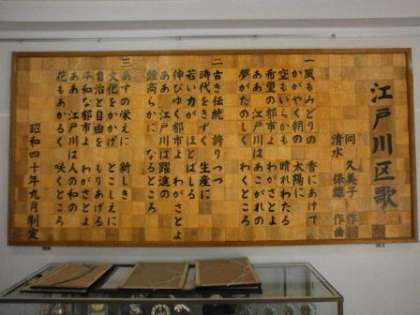 江戸川区歌
同 久美子 作詞
清水 保雄 作曲
一 風もみどりの 香にあけて
かがやく朝の 太陽に
空もいらかも 晴れわたる
希望の都市よ わがさとよ
ああ 江戸川は あこがれの
夢がたのしく わくところ
二 古き伝統 誇りつつ
時代をきずく 生産に
若い力が ほとばしる
伸びゆく都市よ わがさとよ
ああ 江戸川は 躍進の
鐘高らかに なるところ
三 あすの栄えに 新しき
文化をかかげ とこしえに
自治と自由を もりあげる
平和な都市よ わがさとよ
ああ 江戸川は 人の和の
花もあかるく 咲くところ
昭和四十年九月制定